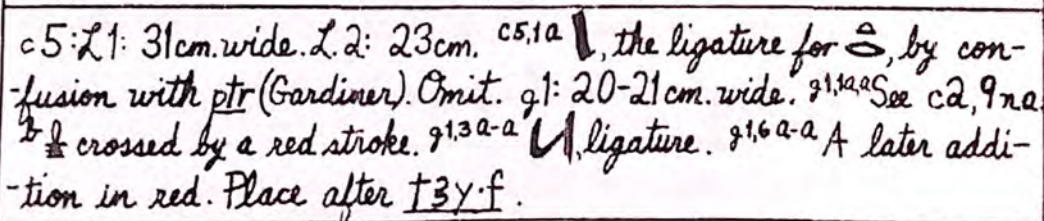 c5:L1: 31cm. wide. L.2: 23cm. c5,1a , the ligature for , by con-
-fusion with ptr (Gardiner). Omit. g1: 20-21cm. wide. g1,1a,a See c2,9na
b crossed by a red stroke. g1,3a-a , ligature. g1,6a-a A later addi-
-tion in red. Place after t3y.f.